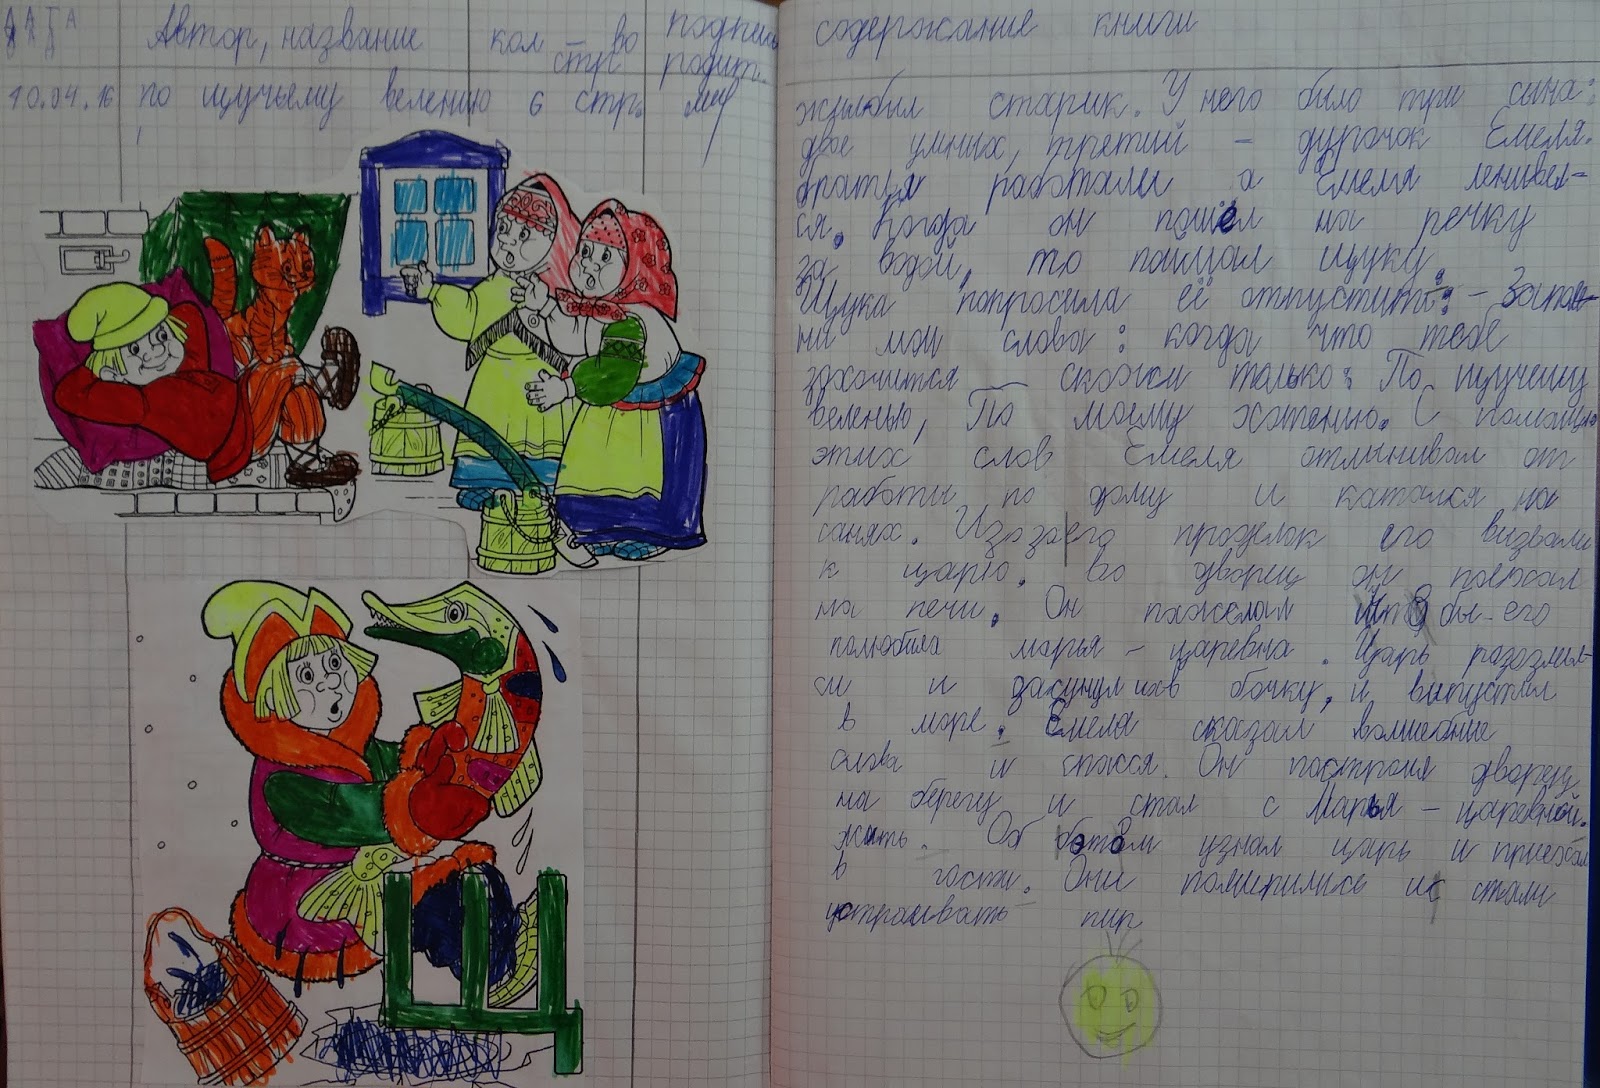 ДАТА Автор, название кол-во подпись
стр родит.
10.04.16 по щучьему велению 6 стр.
содержание книги
жилбыл старик. У него было три сына:
двое умних, третий - дурачок Емеля.
братья работали а Емеля ленивел-
ся. Когда он пошёл на речку
за водой, то поймал щуку.
Щука попросила её отпустить: - Запом-
ни мои слова: когда что тебе
захочится - скажи только: По щучему
веленью, По моему хотению. С помощью
этих слов Емеля отлынивал от
работы по дому и катался на
санях. Изазаего проделок его визвали
к царю. Во дворец он поехал
на печи. Он пожелал чтобы его
полюбила марья - царевна. Царь разозлил-
ся и засунул их в бочку, и выпустил
в море. Емеля сказал волшебные
слова и спасся. Он построил дворец
на берегу и стал с Марья - царевной.
жить. Об этом узнал царь и приехал
в гости. Они помирились и стали
устраивать пир
Щ